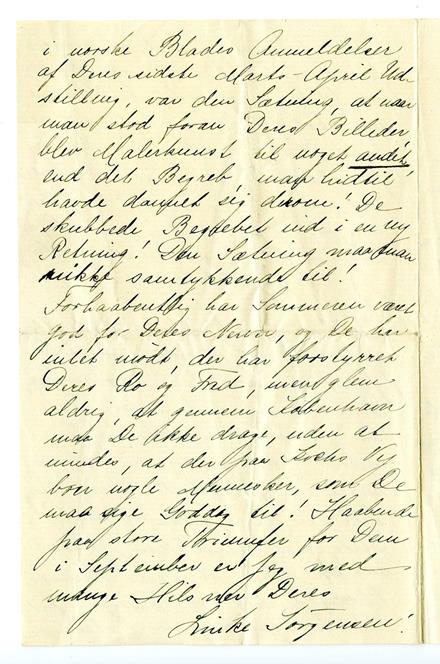 i norske Blades Anmeldelser
af Deres sidste Marts-April Ud-
stilling, var den Sætning, at naar
man stod foran Deres Billeder
blev Malerkunst til noget andet,
end det Begreb man hidtil
havde dannet sig derom! De
skubbede Begrebet ind i en ny
Retning! Den Sætning maa man
nikke samtykkende til!
Forhaabentlig har Sommeren været
god for Deres Nerver, og De har
intet mødt, der har forstyrret
Deres Ro og Fred, men glem
aldrig, at gennem København
maa De ikke drage, uden at
mindes, at der paa Kochs Vej
boer nogle Mennesker, som De
maa sige Goddag til! Haabende
paa store Triumfer for Dem
i September er jeg med
mange Hilsner Deres
Linke Jørgensen!